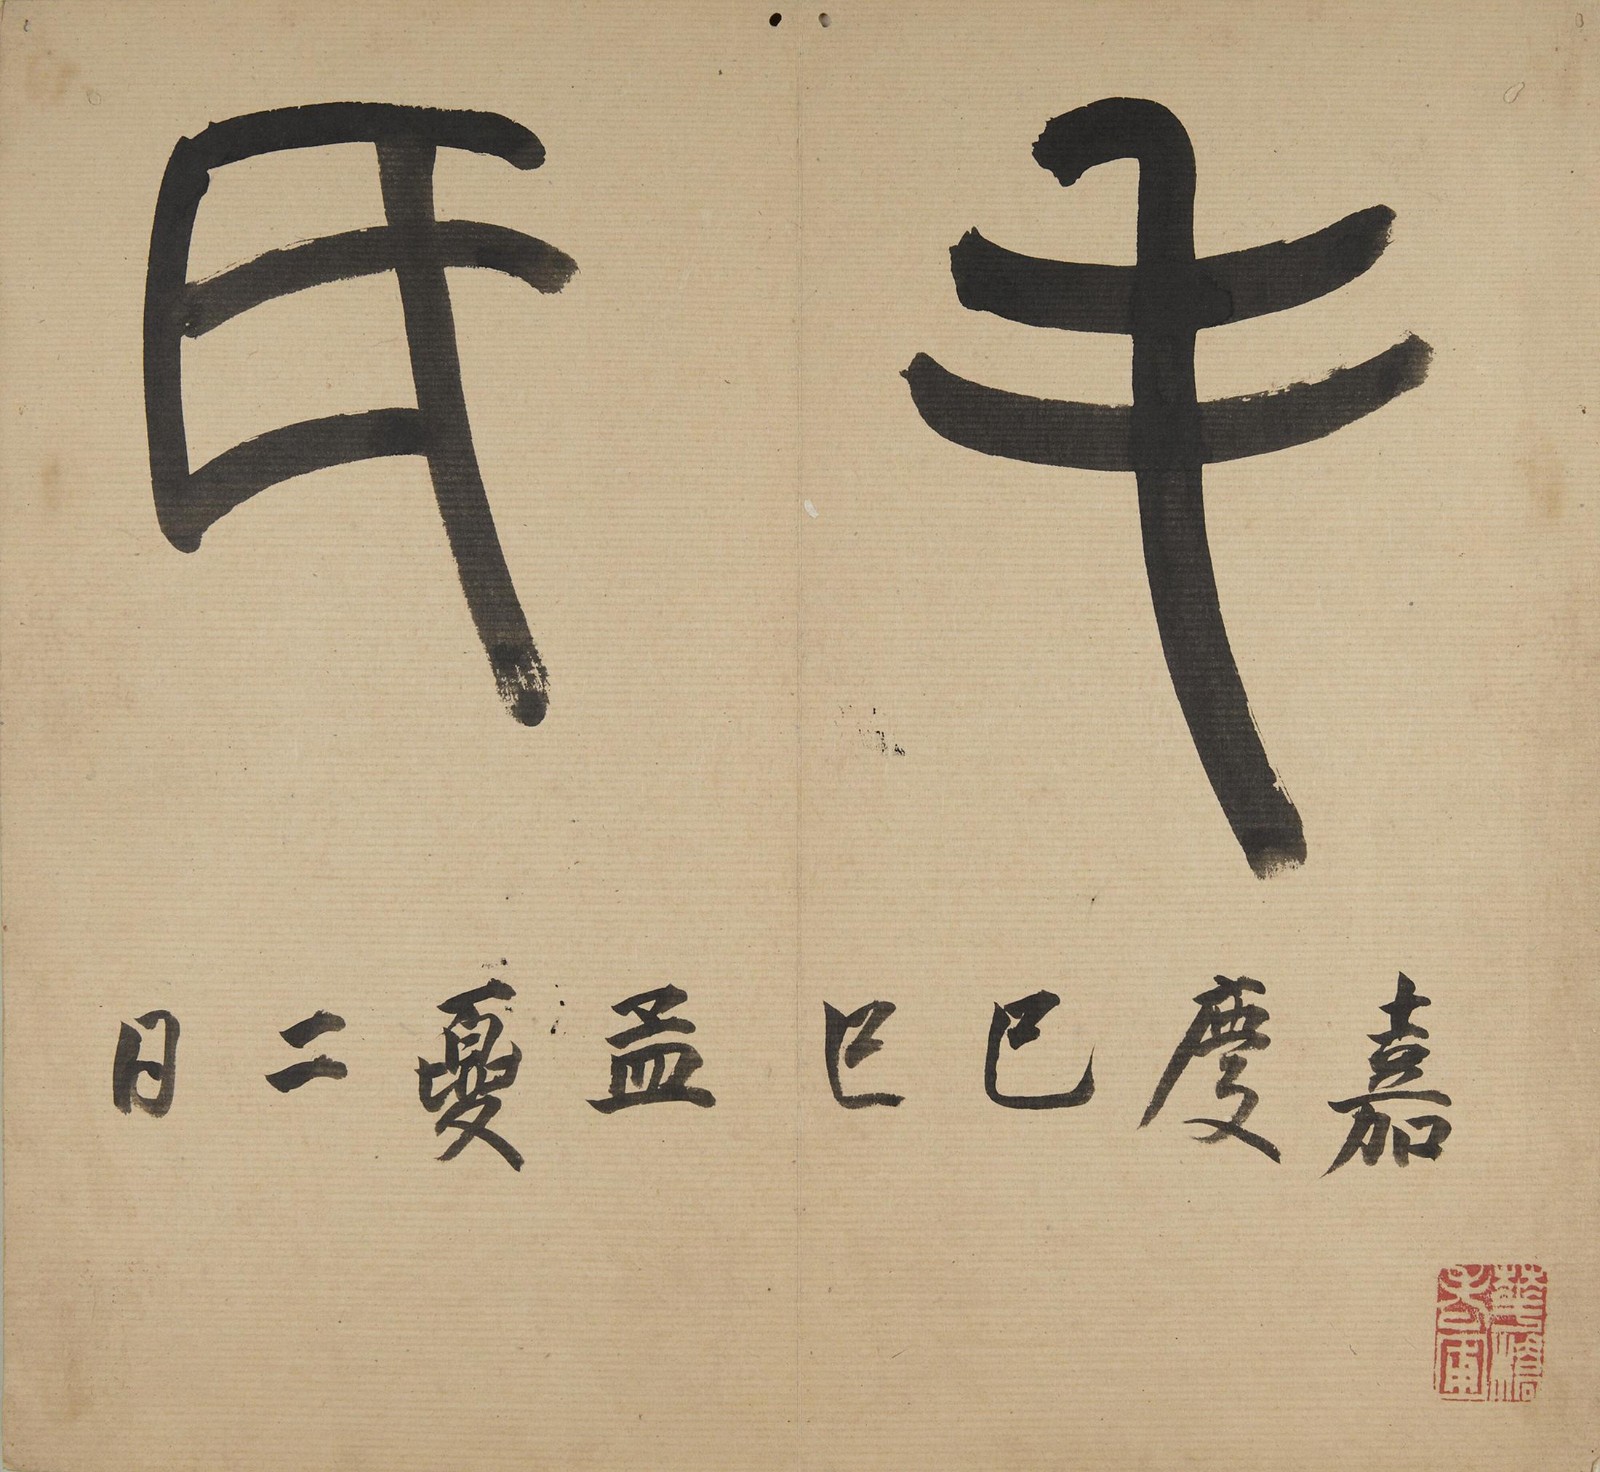 手民
嘉慶己巳孟夏二日